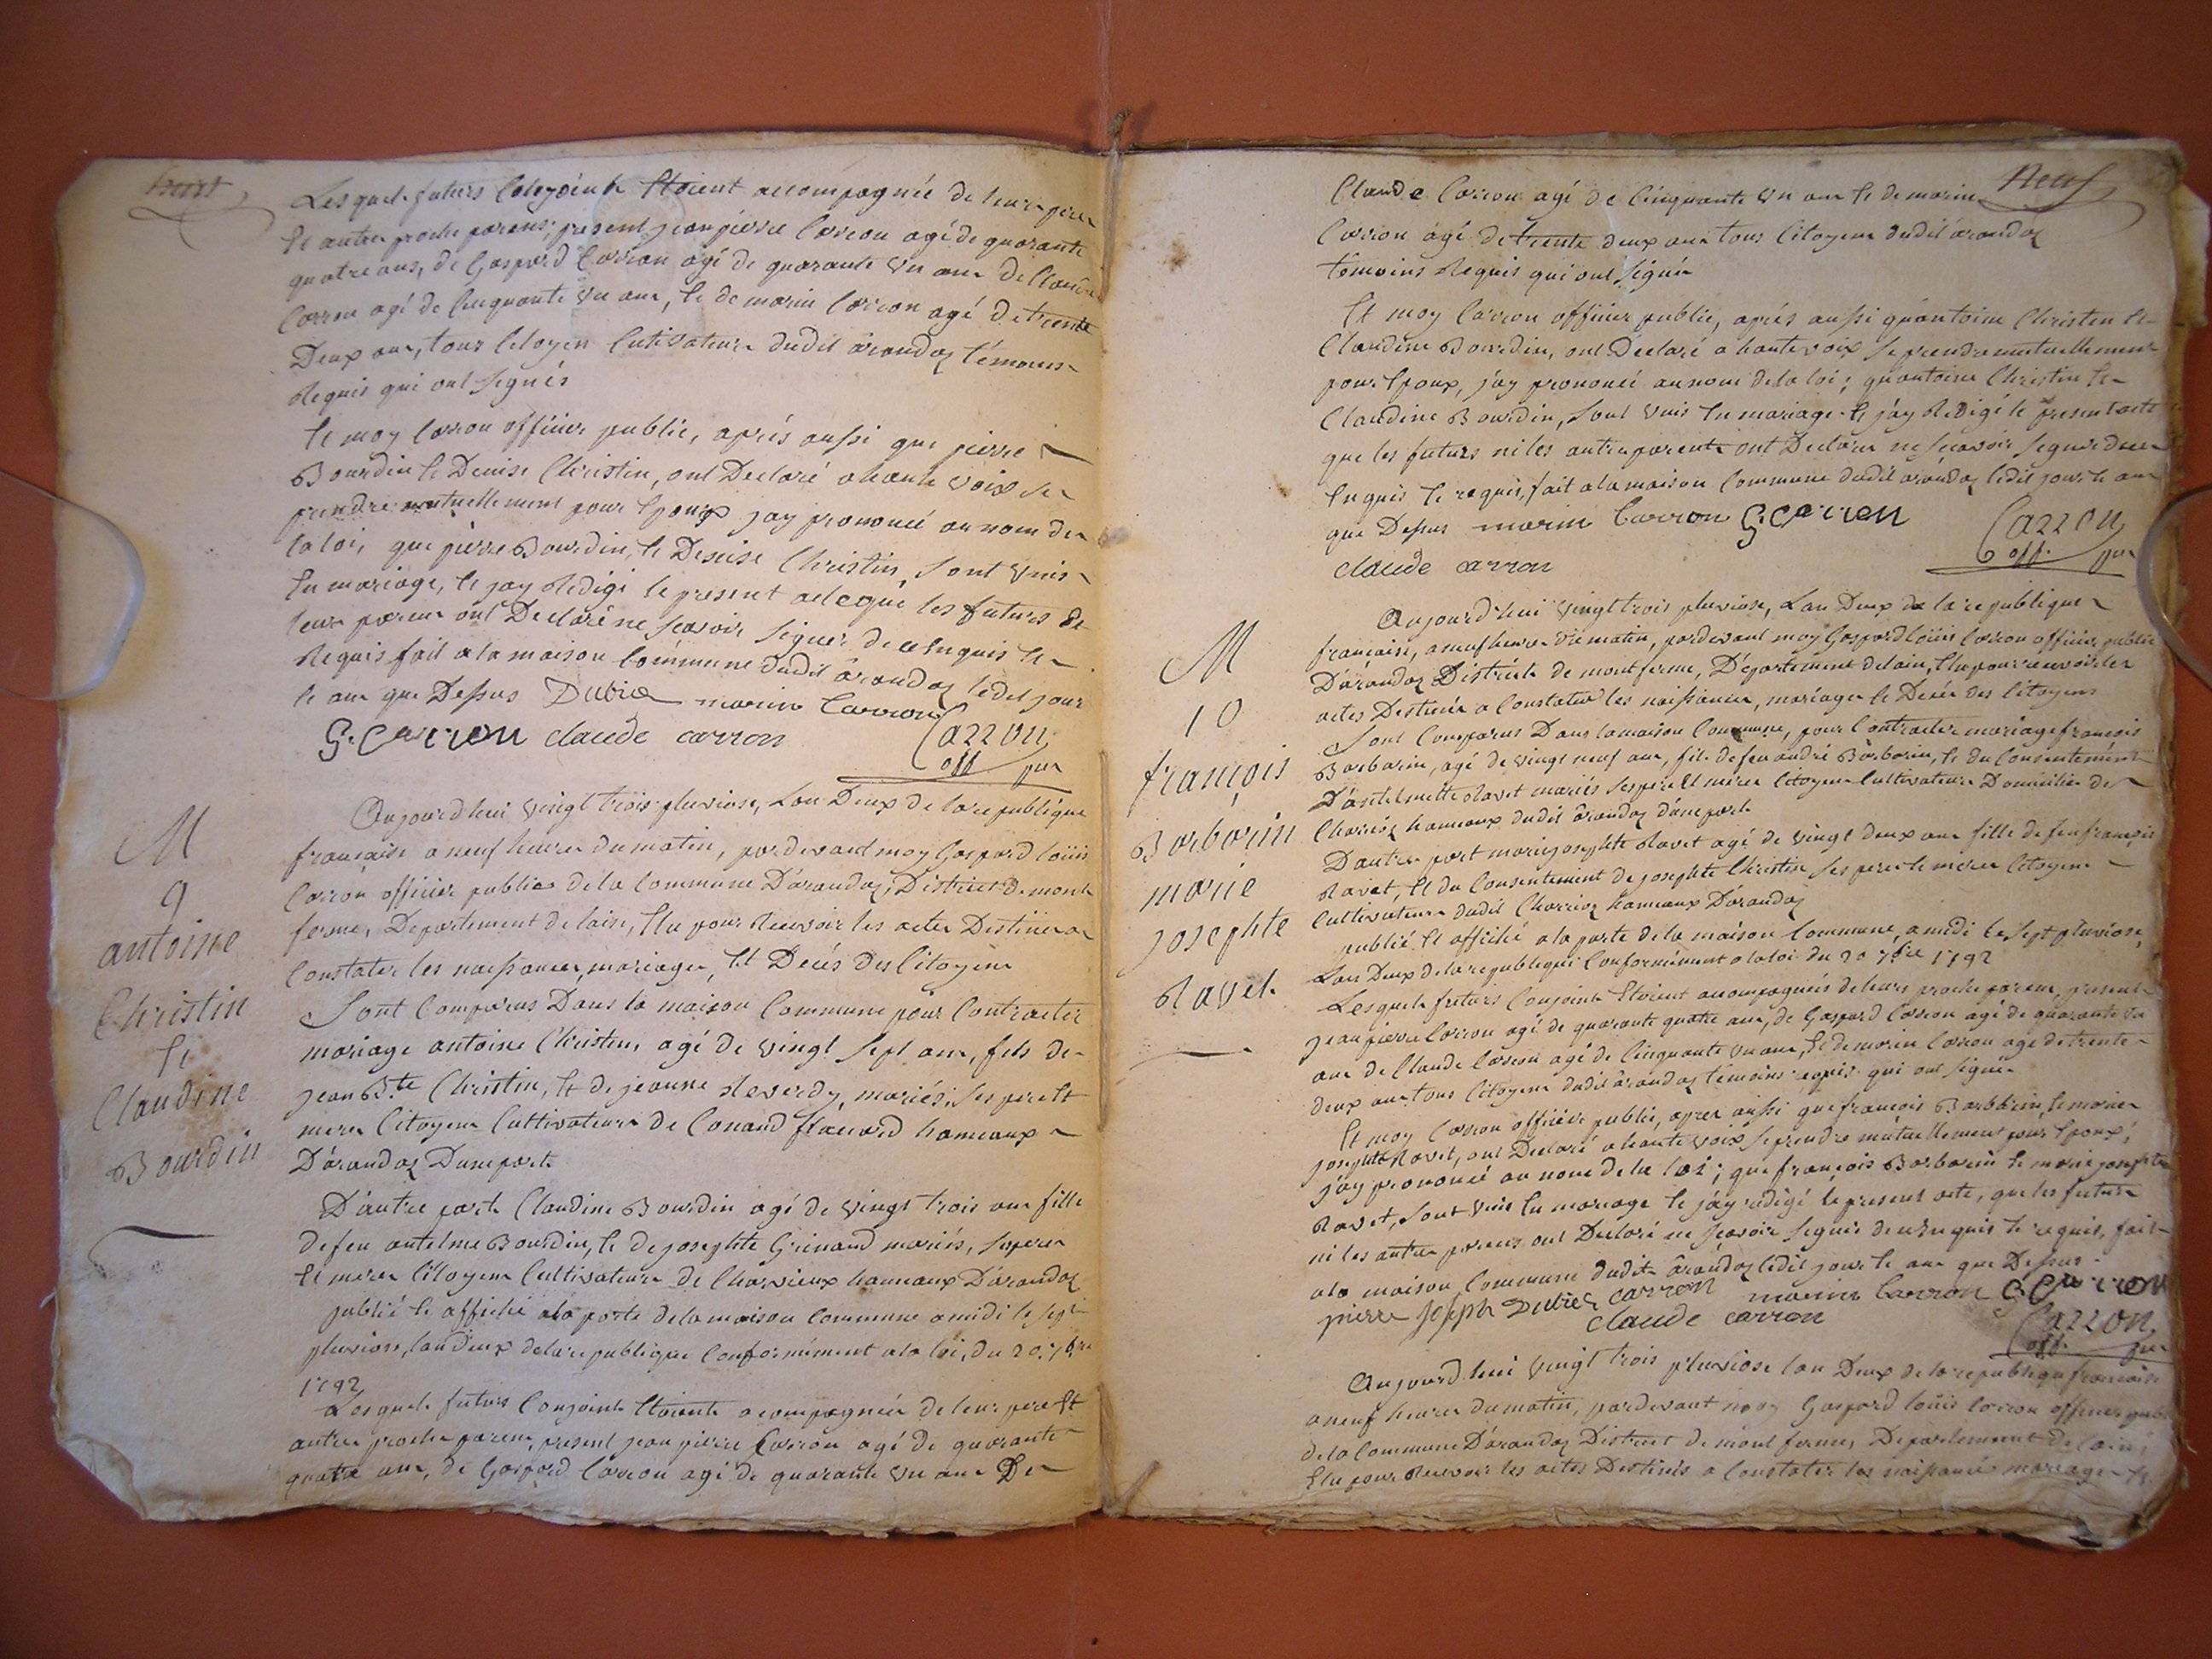 huit
Lesquels futurs Conjoints Etoient accompagnés de leurs peres
Et autres proches parens, present jean pierre Carron agé de quarante
quatre ans, de Gaspard Carron agé de quarante un ans de Claude
Carron agé de Cinquante un ans, Et de marin Carron agé de trente
Deux ans, tous Citoyens Cultivateurs dudit arandaz témoins
Requis qui ont signés
Et moy Carron officier public, aprés aussi que pierre
Bourdin Et Denise Christin, ont Declaré a haute voix se
prendre mutuellement pour Epoux jay prononcé au nom de
la loi, que pierre Bourdin, Et Denise Christin, sont unis
En mariage, Et jay Redigé le present acte que les futurs Et
leurs parens ont Declaré ne scavoir signer de ce Enquis Et
Requis fait a la maison Commune dudit arandaz ledit jour
Et an que Dessus Dubiez marin Carron
G. Carron claude carron Carron
off pu
M
9
antoine
Christin
Et
Claudine
Bourdin
Aujourd'hui vingt trois pluviose, L'an Deux de la republique
française a neuf heures du matin, pardevant moy Gaspard loüis
Carron officier public de la Commune D'arandaz, District de mont
ferme, Departement de lain, Elu pour Recevoir les actes Destinés a
Constater les naissances, mariages, Et Decés Des Citoyens
Sont Comparus Dans la maison Commune pour Contracter
mariage antoine Christin, agé de vingt sept ans, fils de
jean B.te Christin, Et de jeanne Reverdy, mariés, ses pere Et
mere Citoyens Cultivateurs de Conand hameaux
D'arandaz D'une part
D'autre part Claudine Bourdin agé de vingt trois ans fille
de feu antelme Bourdin, Et de josephte Grinand mariés, ses pere
Et mere Citoyens Cultivateurs de Charvieux hameaux D'arandaz
publié Et affiché a la porte de la maison Commune a midi le sept
pluviose, l'an deux de la republique Conformément a la loi, du 20 7bre
1792
Lesquels futurs Conjoints Etoient accompagnés de leurs pere Et
autres proches parens, present jean pierre Carron agé de quarante
quatre ans, de Gaspard Carron agé de quarante un ans De
Neuf
Claude Carron agé de Cinquante un ans Et de marin
Carron agé de trente deux ans tous Citoyens dudit arandaz
témoins Requis qui ont signés
Et moy Carron officier public, aprés aussi qu'antoine Christin Et
Claudine Bourdin, ont Declaré a haute voix se prendre mutuellement
pour Epoux, j'ay prononcé au nom de la loi; qu'antoine Christin Et
Claudine Bourdin, sont unis En mariage Et j'ay Redigé le present acte
que les futurs ni les autres parents ont Declaré ne scavoir signer de ce
Enquis Et requis, fait a la maison Commune dudit arandaz ledit jour Et an
que Dessus marin Carron G. Carron Carron
claude carron off. pu
M
10
françois
Barbarin
marie
josephte
Ravet
Aujourd'hui vingt trois pluviose, L'an Deux de la republique
française, a neuf heures du matin, pardevant moy Gaspard loüis Carron officier public
D'arandaz District de montferme, Département de lain, Elu pour recevoir les
actes Destinés a Constater les naissances, mariages Et Decés des Citoyens
Sont Comparus Dans la maison Commune, pour Contracter mariage françois
Barbarin, agé de vingt neuf ans, fils de feu andré Barbarin, Et du Consentement
D'antelmette Ravet mariés ses pere Et mere Citoyens Cultivateurs Domiciliés de
hameaux dudit arandaz d'une part
D'autre part marie josephte Ravet agé de vingt deux ans fille de feu françois
Ravet, Et du Consentement de josephte Christin ses pere Et mere Citoyens
Cultivateurs dudit hameaux D'arandaz
publié Et affiché a la porte de la maison Commune, a midi Le sept pluviose,
L'an Deux de la republique Conformément a la loi du 20 7bre 1792
Lesquels futurs Conjoints Etoient accompagnés de leurs proches parens, present
jean pierre Carron agé de quarante quatre ans, de Gaspard Carron agé de quarante un
ans de Claude Carron agé de Cinquante un ans, Et de marin Carron agé de trente
deux ans tous Citoyens dudit arandaz témoins requis qui ont signés
Et moy Carron officier public, apres aussi que françois Barbarin, Et marie
josephte Ravet, ont Declaré a haute voix se prendre mutuellement pour Epoux;
j'ay prononcé au nom de la loi; que françois Barbarin Et marie josephte
Ravet, sont unis En mariage Et j'ay redigé le present acte, que les futurs
ni les autres parens ont Declaré ne scavoir signer de ce Enquis Et requis, fait
a la maison Commune dudit arandaz ledit jour Et an que Dessus
pierre joseph Dubiez carron marin Carron G Carron
claude carron Carron
off. pu
Aujourd'hui vingt trois pluviose l'an Deux de la republique française
a neuf heures du matin, pardevant moy Gaspard loüis Carron officier public
de la Commune D'arandaz District de mont ferme, Departement de lain,
Elu pour Recevoir les actes Destinés a Constater les naissances mariages Et